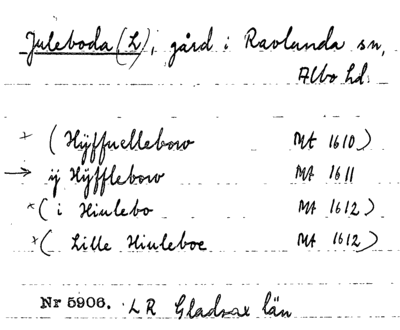 Juleboda (L), gård i Ravlunda sn,
Albo hd.
+ (Hÿffuellebow Mt 1610)
→ ij Hÿfflebow Mt 1611
×(i Hiulebo Mt 1612)
×(Lille Hiuleboe Mt 1612)
Nr 5906. LR Gladsax län